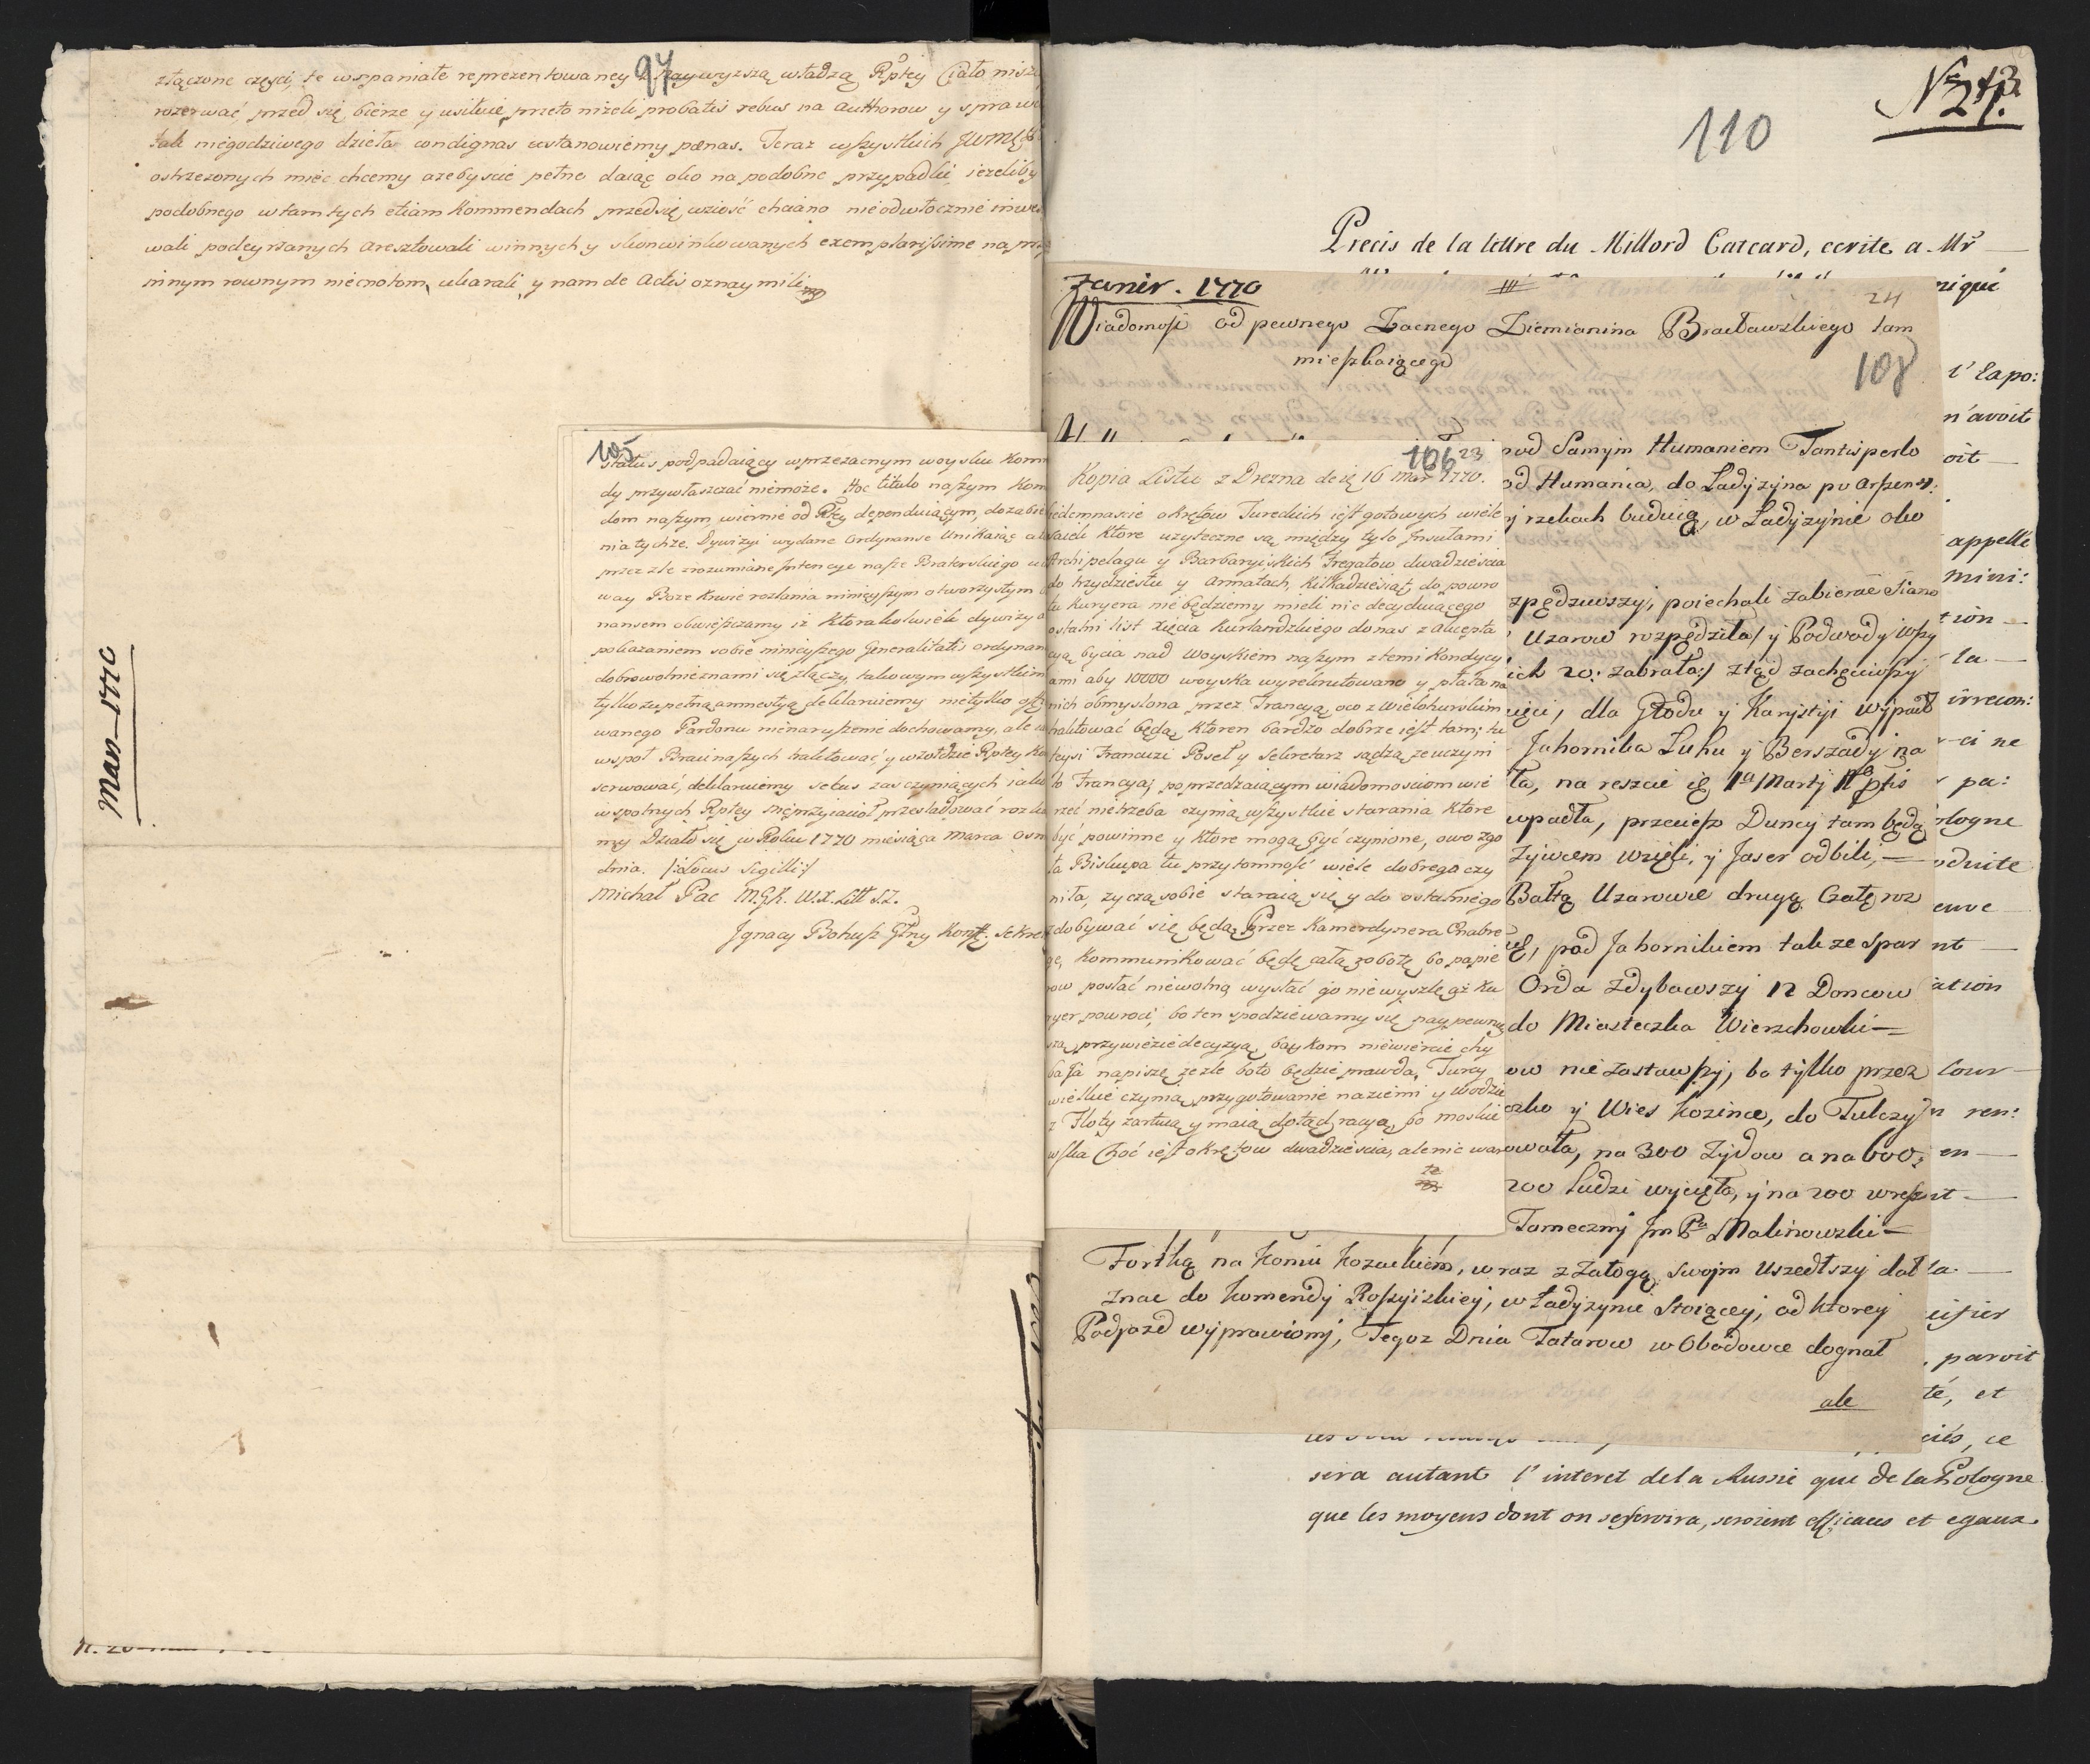 97
złączone części, te wspaniałe reprezentowaney z naywyzszą władzą Rptey Ciało nisz
rozerwać przed się bierze y usiłuie, przeto nizeli probatis rebus na Authorow y spraw
tak niegodziwego dzieła condignas ustanowiemy pœnas. Teraz wszystkich JWM
ostrzezonych mieć chcemy azebyscie pełne daiąc oko na podobne przypadki, iezeliby
podobnego w tamtych etiam Kommendach przedsię wziość chciano nieodwłocznie inwe
wali podeyrzanych aresztowali winnych y skonwinkowanych exemplarissime na
innym rownym niecnotom, ukarali, y nam de Actis oznaymili
Mars 1770
105
status podpadaiący w przezacnym woysku Kom
dy przywłaszczać niemoze. Hoc titulo naszym Kom
dom naszym, wiernie od Rptey dependuiącym, do zabie
nia tychze. Dywizyi wydane Ordynanse Unikaiąc a
przez zle zrozumiane Intencye nasze Braterskiego u
way Boze Krwie rozlania ninieyszym otworzystym
nansem obwieszczamy iz Ktorakolwiek dywizya
pokazaniem sobie ninieyszego Generalitatis ordynan
dobrowolnie z nami się złączy, takowym wszystkim
tylko zupełną amnestyą deklaruiemy nietylko
wanego Pardonu nienaruszenie dochowamy, ale
wspoł Braci naszych traktować, y w zołdzie Rptey Ko
serwować, deklaruiemy secus zas czyniących iako
wspolnych Rptey nieprzyiacioł przesladować roz
my Działo się w Roku 1770 miesiąca Marca Osm
dnia. /:Locus Sigilli:/
Michał Pac M.G.K. W.X. Litt S.Z.
Ignacy Bohusz Glny Konf: Sekre
106 23
Kopia Listu z Drezna de ię 16 Mar 1770.
iedemnascie okrętow Tureckich iest gotowych wiele
saiek Ktore uzyteczne są między tylo Insulami
Archipelagu y Barbaryiskich Fregatow dwadziescia
do trzydziestu y Armatach, Kilkadziesiąt do powro
tu Kuryera nie będziemy mieli nic decyduiącego
ostatni list xięcia Kurlandzkiego do nas z akcepta
cyą bycia nad Woyskiem naszym z temi Kondycy
ami aby 10000 woyska wyrekrutowano y płata na
nich obmyslona przez Francyą, oco z Wielohurskim
traktować będą, Ktoren bardzo dobrze iest tam; tu
teysi Francuzi Poseł y Sekretarz sądzą ze uczyni
to Francya; poprzedzaiącym wiadomosciom wie
rzć nietrzeba czynią wszystkie starania Ktore
byc powinne y Ktore mogą być czynione, owo zgo
ła Biskupa tu przytomność wiele dobrego czy
niła, zyczą sobie staraią się y do ostatniego
zdobywać się będą Przez Kamerdynera Chabre
gę, Kommunikować będę całą robotę bo papie
row posłać niewolną wysłać go niewyszlę az Ku
ryer powroci, bo ten spodziewamy się naypewnie
szą przywiezie decyzyą, baykom niewiercie chy
ba Ja napiszę ze zle boto będzie prawda, Turcy
wielkie czynią przygotowanie na ziemi y Wodzie
z Floty zartuią y maią dotąd racyą, bo moskie
wska Choć iest okrętow dwadziescia, ale nic war
te
Janier. 1770
24
108
Wiadomość od pewnego Zacnego Ziemianina Bracławskiego tam
mieszkaiącego
pod Samym Humaniem Tantisperlo
od Humania, do Ładyzyna po
rzekach buduią, w Ładyzynie oko
zpędziwszy, poiechali zabierać Siano
Uzarow rozpędziła/ y Podwody wszy
ich 20: zabrała:/ ztąd zachęciwszy
ięci, dla Głodu y Karystyi wypadł
Jahornika Luhu y Berszady na
ła, na reszcie ię 1a Marty
wpadła, przeciesz Duncy tam będą
zywcem wzięli, y Jaser odbili,
Bałtą Uzarowie drugą Czatę roz
ę, pod Jahornikiem takze Spar
Orda Zdybawszy 12 Doncow
do Miasteczka Wierzchowki
ow nie zastawszy, bo tylko przez
czko y Wies Kozince, do Tulczy
owała, na 300 Zydow a na 600:
200 Ludzi wycięła, y na 200 w
Tameczny Jm Pn Malinowski
Fortką na Koniu Kozackiem, wraz z Załogą Swoim Uszedłszy dał
znac do Komendy Roszyiskiey, w Ładyzynie Stoiącey, od Ktorey
Podjazd wyprawiony, Tegoz Dnia Tatarow w Obodowce dognał
ale
110
No 24.
Precis de la lettre du Millord Catcard, ecrite a Mr
l'Capo:
n'avoit
oit
appellé
mini:
tion
la
irrecon:
ci ne
pa:
ologne
oduite
euve
nt
ation
Cour
n ren:
en
t
la
eisier
paroit
té, et
ciés, ce
sera autant l'interet de la Russie que de la Pologne
que les moyens dont on se servira, seroient efficaces et egaux